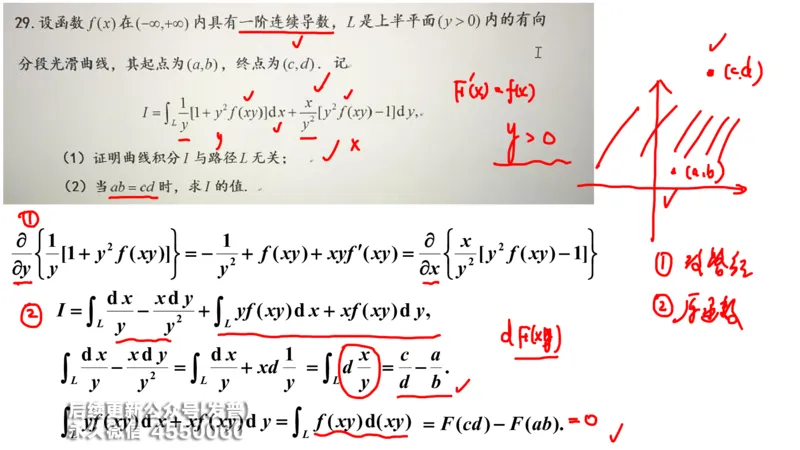 29. 设函数 f(x) 在 (-∞,+∞) 内具有一阶连续导数，L 是上半平面 (y > 0) 内的有向
分段光滑曲线，其起点为 (a,b)，终点为 (c,d)．记
I = ∫_L 1/y [1+ y² f(xy)]dx + x/y² [y² f(xy) − 1]dy,
（1）证明曲线积分 I 与路径 L 无关；
（2）当 ab = cd 时，求 I 的值.
F'(x) = f(x)
y > 0
y
x
(c,d)
(a,b)
①
∂/∂y {1/y [1 + y² f(xy)]} = − 1/y² + f(xy) + xyf′(xy) = ∂/∂x {x/y² [y² f(xy) − 1]}
②
I = ∫_L dx/y − xdy/y² + ∫_L yf(xy)dx + xf(xy)dy,
∫_L dx/y − xdy/y² = ∫_L dx/y + xd 1/y = ∫_L d x/y = c/d − a/b.
d F(xy)
∫_L yf(xy)dx + xf(xy)dy = ∫_L f(xy)d(xy) = F(cd) − F(ab). = 0
① 改路径
② 原函数
后续更新公众号[发普]
永久微信 4550000